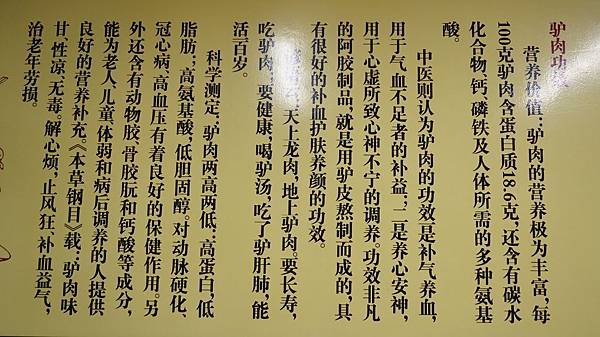 驴肉功效
营养价值:驴肉的营养极为丰富,每
100克驴肉含蛋白质18.6克,还含有碳水
化合物、钙、磷铁及人体所需的多种氨基
酸。
中医则认为驴肉的功效一是补气养血,
用于气血不足者的补益;二是养心安神,
用于心虚所致心神不宁的调养。功效非凡
的阿胶制品,就是用驴皮熬制而成的,具
有很好的补血护肤养颜的功效。
天上龙肉,地上驴肉。要长寿,
吃驴肉;要健康,喝驴汤,吃了驴肝肺,能
活百岁。
科学测定:驴肉两高两低:高蛋白,低
脂肪;高氨基酸,低胆固醇。对动脉硬化、
冠心病、高血压有着良好的保健作用。另
外还含有动物胶,骨胶朊和钙酸等成分,
能为老人、儿童、体弱和病后调养的人提供
良好的营养补充。《本草钢目》载:驴肉味
甘、性凉、无毒。解心烦,止风狂,补血益气,
治老年劳损。